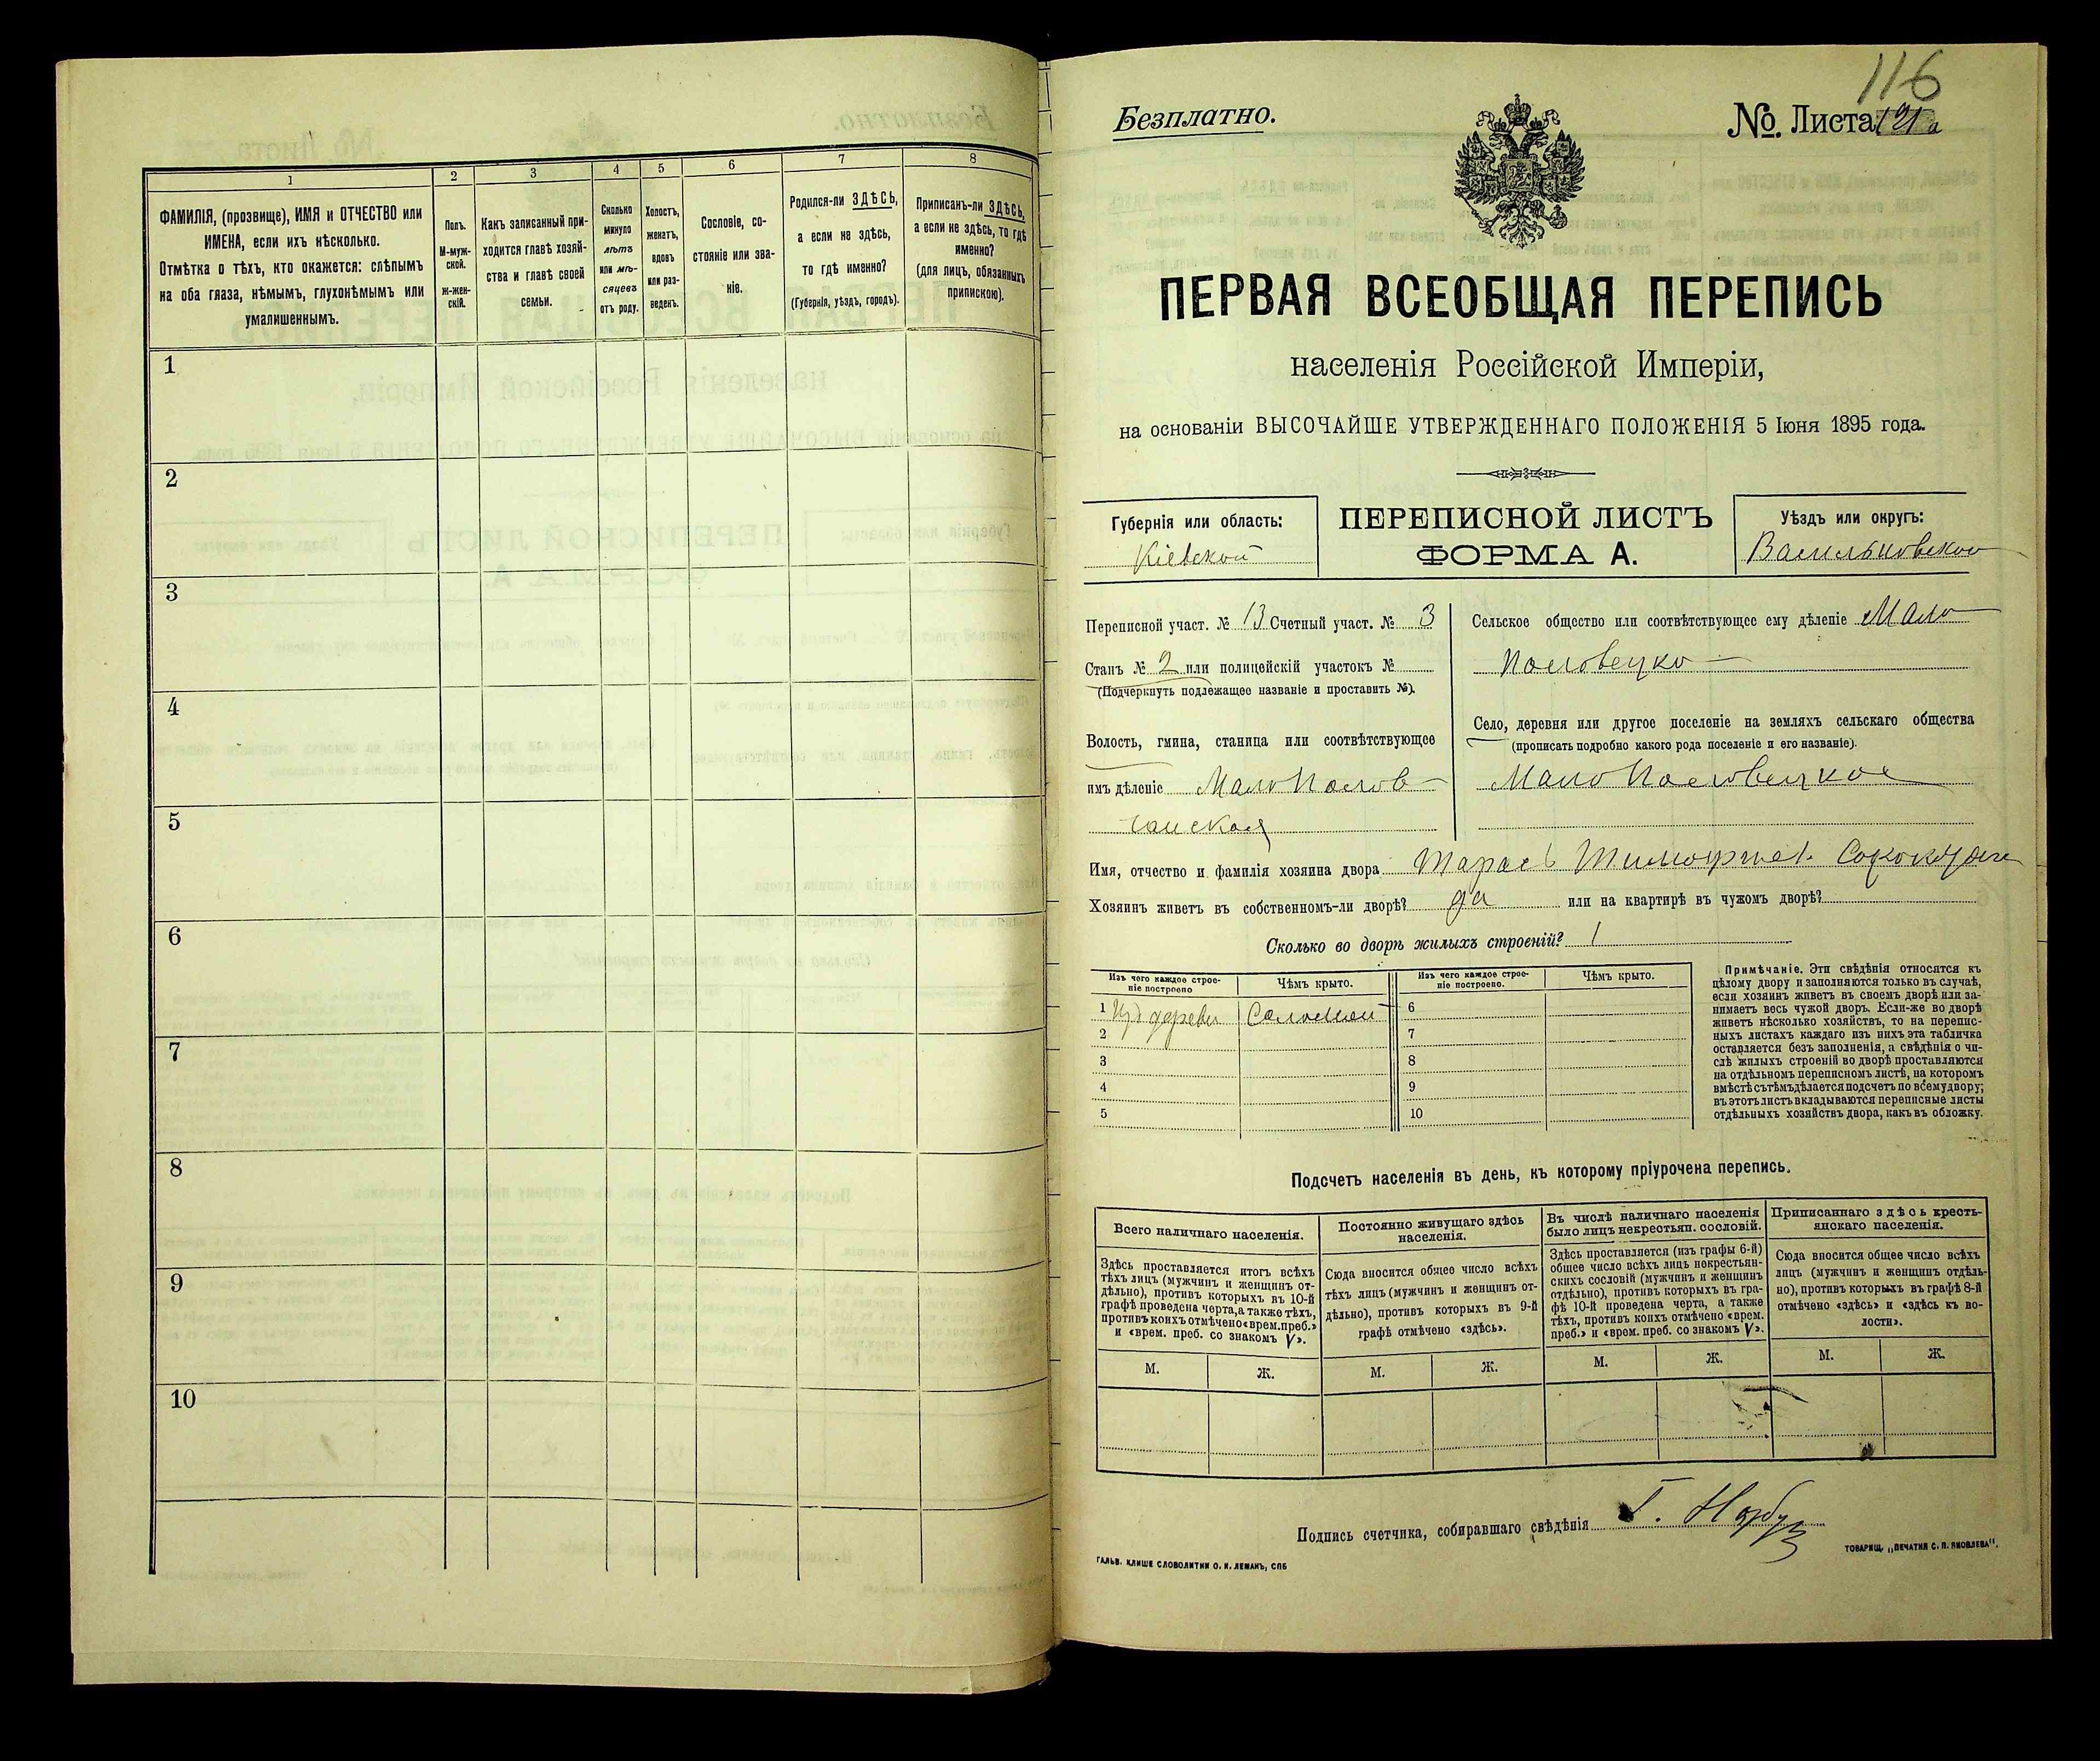 1
2
3
4
5
6
7
8
ФАМИЛІЯ, (прозвище), ИМЯ и ОТЧЕСТВО или
ИМЕНА, если ихъ нѣсколько.
Отмѣтка о тѣхъ, кто окажется: слѣпымъ
на оба глаза, нѣмымъ, глухонѣмымъ или
умалишеннымъ.
Полъ.
М-муж-
ской.
Ж-жен-
скій.
Какъ записанный при-
ходится главѣ хозяй-
ства и главѣ своей
семьи.
Сколько
минуло
лѣтъ
или мѣ-
сяцевъ
отъ роду.
Холостъ,
женатъ,
вдовъ
или раз-
веденъ.
Сословіе, со-
стояніе или зва-
ніе.
Родился-ли ЗДѢСЬ,
а если не здѣсь,
то гдѣ именно?
(Губернія, уѣздъ, городъ).
Приписанъ-ли ЗДѢСЬ,
а если не здѣсь, то гдѣ
именно?
(для лицъ, обязанныхъ
припискою).
1
2
3
4
5
6
7
8
9
10
116
Безплатно.
№. Листа 121а
ПЕРВАЯ ВСЕОБЩАЯ ПЕРЕПИСЬ
населенія Россійской Имперіи,
на основаніи ВЫСОЧАЙШЕ УТВЕРЖДЕННАГО ПОЛОЖЕНІЯ 5 Іюня 1895 года.
Губернія или область:
Кіевской
ПЕРЕПИСНОЙ ЛИСТЪ
ФОРМА А.
Уѣздъ или округъ:
Васильковской
Переписной участ. № 13 Счетный участ. № 3
Станъ № 2 или полицейскій участокъ №
(Подчеркнуть подлежащее названіе и проставить №).
Волость, гмина, станица или соотвѣтствующее
имъ дѣленіе МалоПолов-
Сельское общество или соотвѣтствующее ему дѣленіе Мало
Половецко
Село, деревня или другое поселеніе на земляхъ сельскаго общества
(прописать подробно какого рода поселеніе и его названіе).
МалоПоловецкое
Имя, отчество и фамилія хозяина двора Тарасъ
Хозяинъ живетъ въ собственномъ-ли дворѣ? да или на квартирѣ въ чужомъ дворѣ?
Сколько во дворѣ жилыхъ строеній? 1
Изъ чего каждое строе-
ніе построено
Чѣмъ крыто.
Изъ чего каждое строе-
ніе построено.
Чѣмъ крыто.
1 Изъ дерева Соломой
2
3
4
5
6
7
8
9
10
Примѣчаніе. Эти свѣдѣнія относятся къ
цѣлому двору и заполняются только въ случаѣ,
если хозяинъ живетъ въ своемъ дворѣ или за-
нимаетъ весь чужой дворъ. Если-же во дворѣ
живетъ нѣсколько хозяйствъ, то на перепис-
ныхъ листахъ каждаго изъ нихъ эта табличка
оставляется безъ заполненія, а свѣдѣнія о чи-
слѣ жилыхъ строеній во дворѣ проставляются
на отдѣльномъ переписномъ листѣ, на которомъ
вмѣстѣ съ тѣмъ дѣлается подсчетъ по всему двору;
въ этотъ листъ вкладываются переписные листы
отдѣльныхъ хозяйствъ двора, какъ въ обложку.
Подсчетъ населенія въ день, къ которому пріурочена перепись.
Всего наличнаго населенія.
Здѣсь проставляется итогъ всѣхъ
тѣхъ лицъ (мужчинъ и женщинъ от-
дѣльно), противъ которыхъ въ 10-й
графѣ проведена черта, а также тѣхъ,
противъ коихъ отмѣчено «врем. преб.»
и «врем. преб. со знакомъ V».
М.
Ж.
Постоянно живущаго здѣсь
населенія.
Сюда вносится общее число всѣхъ
тѣхъ лицъ (мужчинъ и женщинъ от-
дѣльно), противъ которыхъ въ 9-й
графѣ отмѣчено «здѣсь».
М.
Ж.
Въ числѣ наличнаго населенія
было лицъ некрестьян. сословій.
Здѣсь проставляется (изъ графы 6-й)
общее число всѣхъ лицъ некрестьян-
скихъ сословій (мужчинъ и женщинъ
отдѣльно), противъ которыхъ въ гра-
фѣ 10-й проведена черта, а также
тѣхъ, противъ коихъ отмѣчено «врем.
преб.» и «врем. преб. со знакомъ V».
М.
Ж.
Приписаннаго здѣсь кресть-
янскаго населенія.
Сюда вносится общее число всѣхъ
лицъ (мужчинъ и женщинъ отдѣль-
но), противъ которыхъ въ графѣ 8-й
отмѣчено «здѣсь» и «здѣсь къ во-
лости».
М.
Ж.
Подпись счетчика, собиравшаго свѣдѣнія Г.
ГАЛЬВ. КЛИШЕ СЛОВОЛИТНИ О. И. ЛЕМАНЪ, СПБ
ТОВАРИЩ. „ПЕЧАТНЯ С. П. ЯКОВЛЕВА".